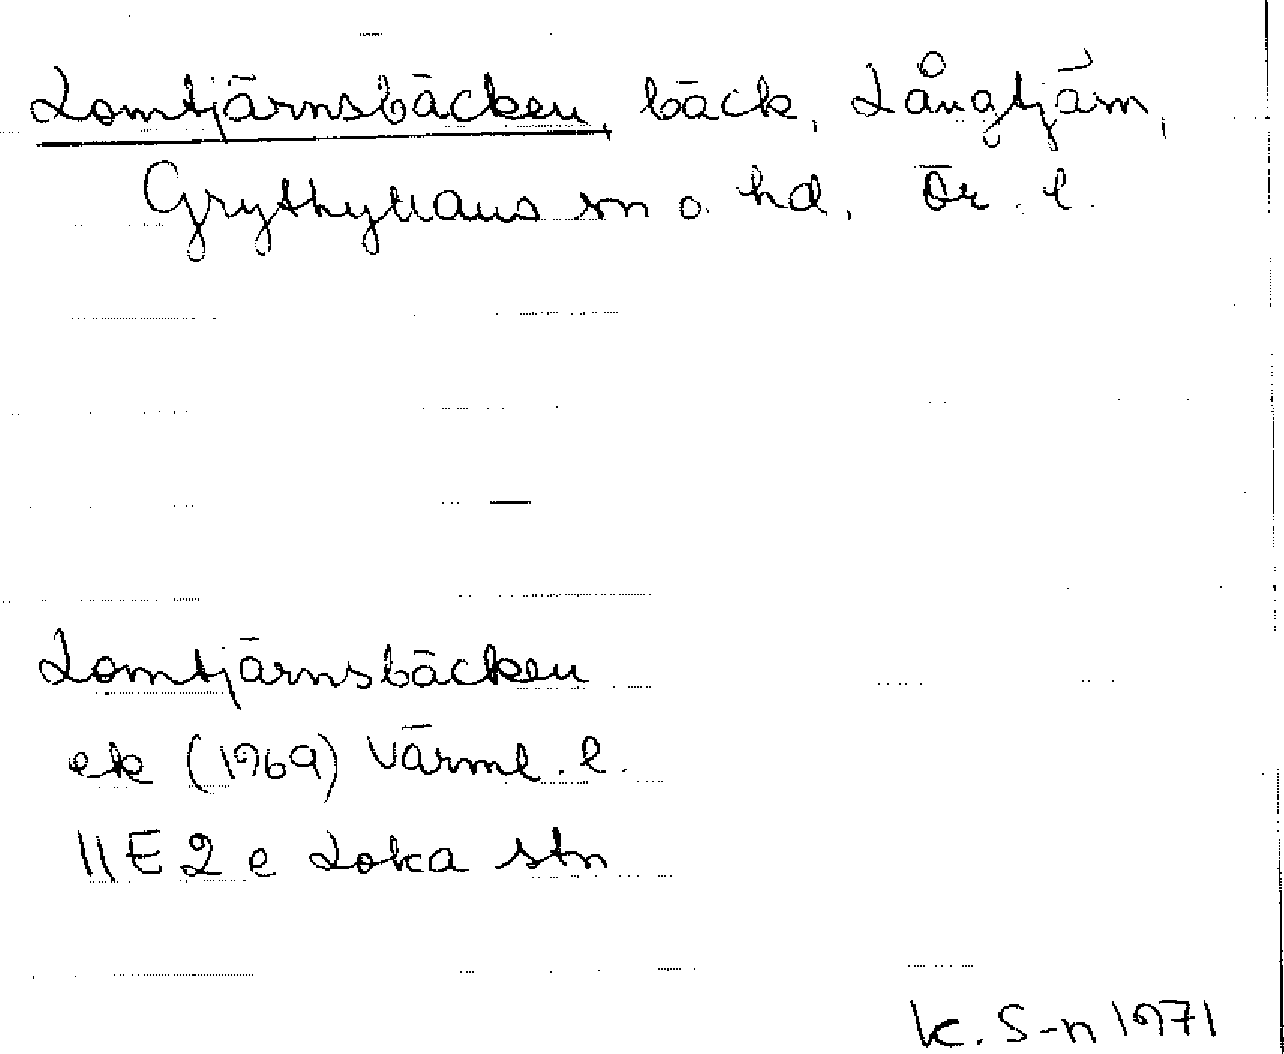 Lomtjärnsbäcken, bäck, Långtjärn,
Grythyttans sn o. hd. Ör. l.
Lomtjärnsbäcken
ek (1969) Värml. l.
11E 2e Loka stn
K. S-n 1971